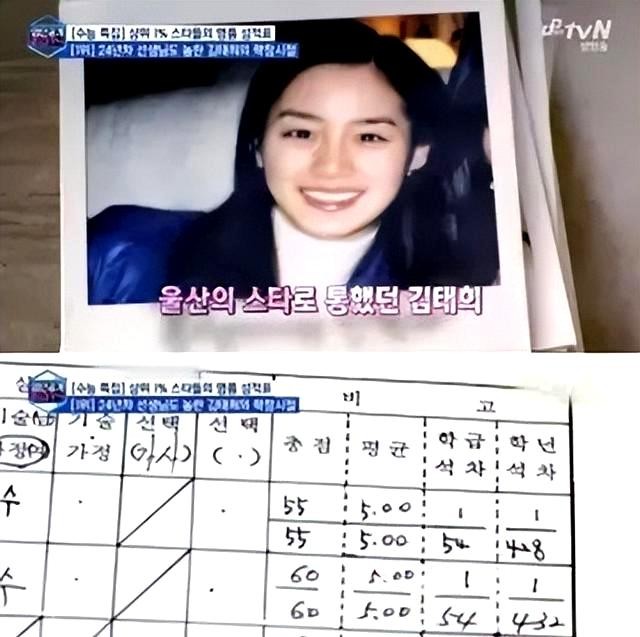 [수능 특집] 상위 1% 스타들의 명품 성적표
[1위] 24년차 선생님도 놀란 김태희의 학창시절
tvN
울산의 스타로 통했던 김태희
[수능 특집] 상위 1% 스타들의 명품 성적표
[1위] 24년차 선생님도 놀란 김태희의 학창시절
비 고
기 술 선 택 선 택 총 점 평 균 학 급 학 년
가 정 (가 사) ( . ) 석 차 석 차
수 55 5.00 1 1
55 5.00 54 428
수 60 5.00 1 1
60 5.00 54 432